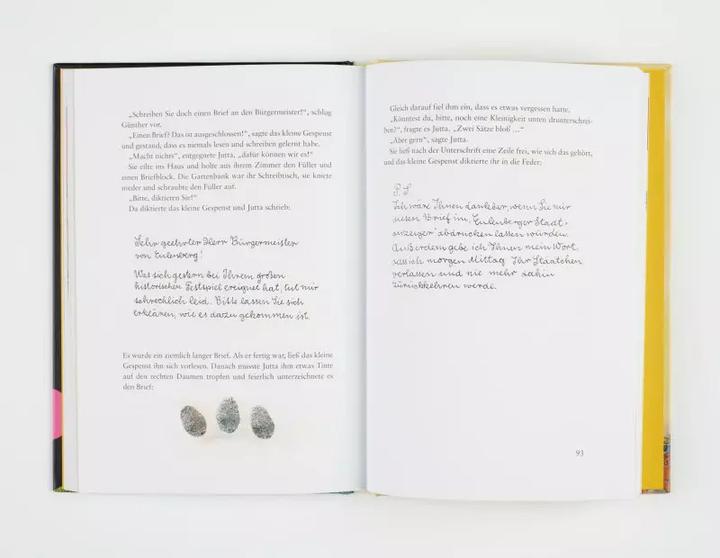 „Schreiben Sie doch einen Brief an den Bürgermeister!“, schlug
Günther vor.
„Einen Brief? Das ist ausgeschlossen!“, sagte das kleine Gespenst
und gestand, dass es niemals lesen und schreiben gelernt habe.
„Macht nichts“, entgegnete Jutta, „dafür können wir es!“
Sie eilte ins Haus und holte aus ihrem Zimmer den Füller und
einen Briefblock. Die Gartenbank war ihr Schreibtisch, sie kniete
nieder und schraubte den Füller auf.
„Bitte, diktieren Sie!“
Da diktierte das kleine Gespenst und Jutta schrieb:
Sehr geehrter Herr Bürgermeister
von Eulenberg!
Was sich gestern bei Ihrem großen
historischen Festspiel ereignet hat, tut mir
schrecklich leid. Bitte lassen Sie sich
erklären, wie es dazu gekommen ist.
Es wurde ein ziemlich langer Brief. Als er fertig war, ließ das kleine
Gespenst ihn sich vorlesen. Danach musste Jutta ihm etwas Tinte
auf den rechten Daumen tropfen und feierlich unterzeichnete es
den Brief:
Gleich darauf fiel ihm ein, dass es etwas vergessen hatte.
„Könntest du, bitte, noch eine Kleinigkeit unten drunterschrei-
ben?“, fragte es Jutta. „Zwei Sätze bloß ...“
„Aber gern“, sagte Jutta.
Sie ließ nach der Unterschrift eine Zeile frei, wie sich das gehört,
und das kleine Gespenst diktierte ihr in die Feder:
P.S.
Ich wäre Ihnen dankbar, wenn Sie mir
diesen Brief im „Eulenberger Stadt-
anzeiger“ abdrucken lassen würden.
Außerdem gebe ich Ihnen mein Wort,
dass ich morgen Mittag Ihr Städtchen
verlassen und nie mehr dahin
zurückkehren werde.
93